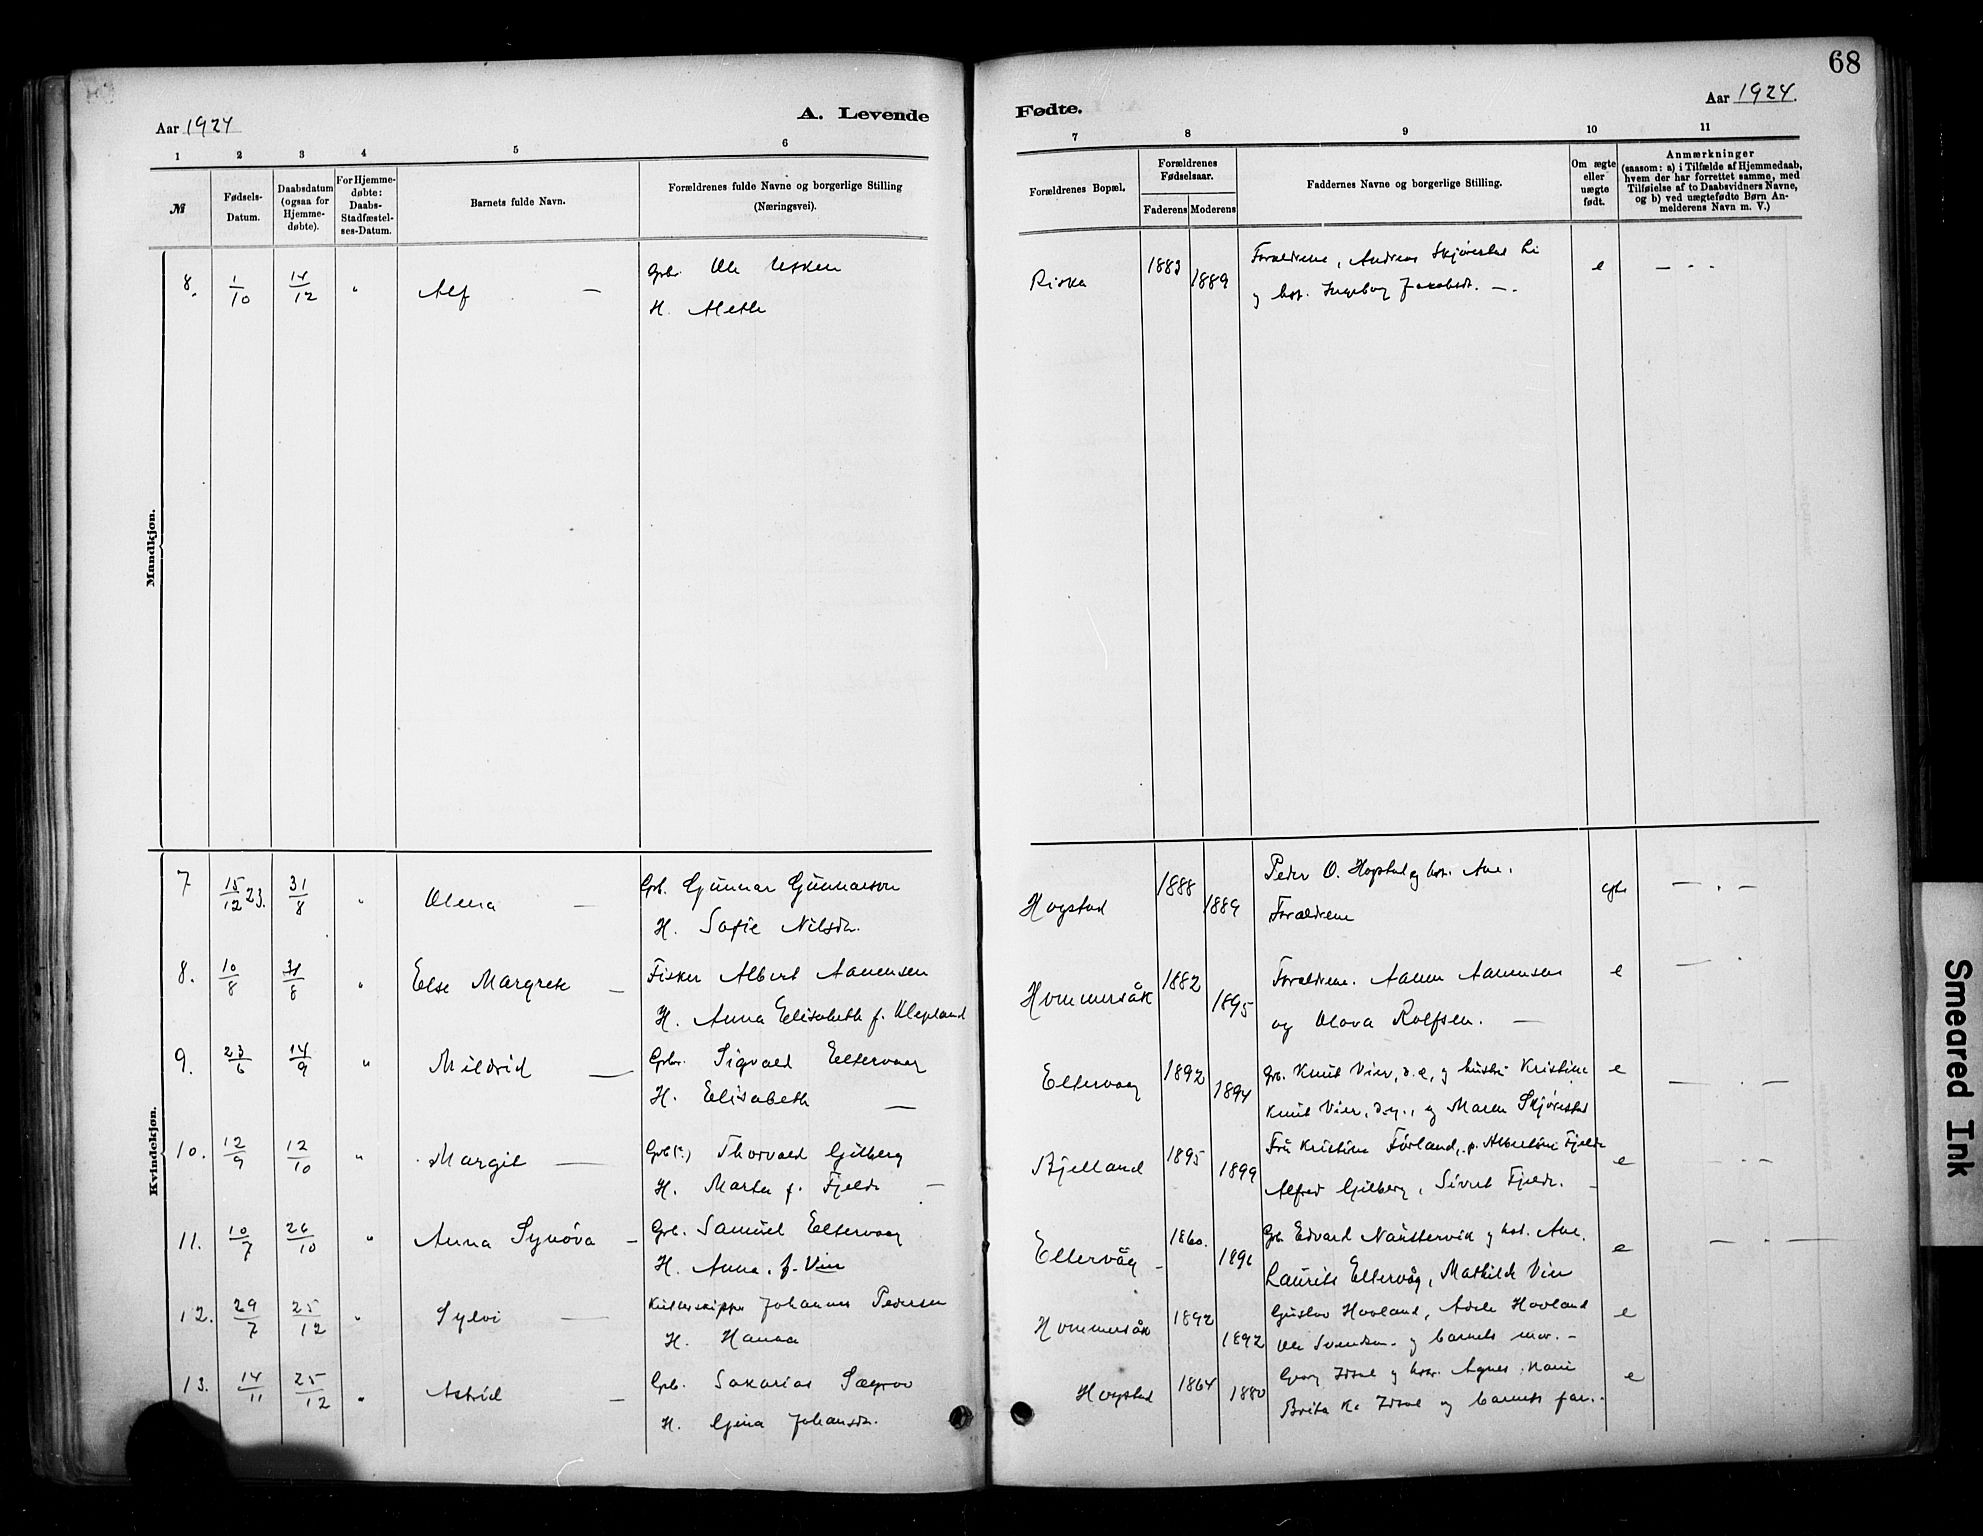 68
Aar 1924
A. Levende
Fødte.
Aar 1924.
1 2 3 4 5 6 7 8 9 10 11
№
Fødsels-
Datum.
Daabsdatum
(ogsaa for
Hjemme-
døbte).
For Hjemme-
døbte:
Daabs-
Stadfæstel-
ses-Datum.
Barnets fulde Navn.
Forældrenes fulde Navne og borgerlige Stilling
(Næringsvei).
Forældrenes Bopæl.
Forældrenes
Fødselsaar.
Faderens Moderens
Faddernes Navne og borgerlige Stilling.
Om ægte
eller
uægte
født.
Anmærkninger
(saasom: a) i Tilfælde af Hjemmedaab,
hvem der har forrettet samme, med
Tilføielse af to Daabsvidners Navne,
og b) ved uægtefødte Børn An-
melderens Navn m. V.)
Mandkjøn.
8. 1/10 14/12 " Alf —
Gbr. Ole Usken
H. Meth
Riska 1883 1889
Forældrene, Andreas Skjørestad
og hst. Ingeborg Jakobsdt. —.
e — - -
Kvindekjøn.
7 15/12 23. 31/8 " Olena —
Grb. Gunnar Gunnarson
H. Sofie Nilsdr.
Hogstad 1888 1889
Peder O. Hogstad og hst. Ane.
Forældrene
— . —
8. 10/8 31/8 " Else Margrete —
Fisker Albert Aanensen
H. Anna Elisabeth f. Klepland
Hommersåk 1882 1895
Forældrene. Aanen Aanensen
og Olava Rolfsen. —
e — .
9. 23/6 14/9 " Mildrid —
Gbr. Sigvald Eltervaag
H. Elisabeth —
Eltervaag 1892 1894
Grb. Knut Vier, d.e., og hustr Kristine
Knut Vier, d.y., og Maren Skjørestad
e — . —
10. 12/9 12/10 " Margit —
Grb(s.) Thorvald Gilberg
H. Marta f. Fjelde —
Bjelland 1895 1899
Fru Kristine Førland, p. Albertine Fjelde
Alfred Gilberg, Sivert Fjelde. -
e - . -
11. 10/7 26/10 " Anna Synøva -
Grb. Samuel Eltervaag
H. Anna, f. Vier
Eltervåg - 1860. 1896
Grb. Edvard Naustervik og hst. Ane.
Laurits Eltervåg, Mathilde Vier
e — . —
12. 29/7 25/12 " Sylvi —
Johannes Pedersen
H. Hanna
Hommersåk 1892 1892
Gustav Hovland, Adele Hovland
Ole Svendsen og barnets mor. -
e
13. 14/11 25/12 " Astrid -
Grb. Sakarias Sægrov
H. Gina Johansdr.
Hogstad 1864 1880
Georg Idsal og hstr. Agnes
Brita Idsal og barnets far. -
e
Smeared Ink